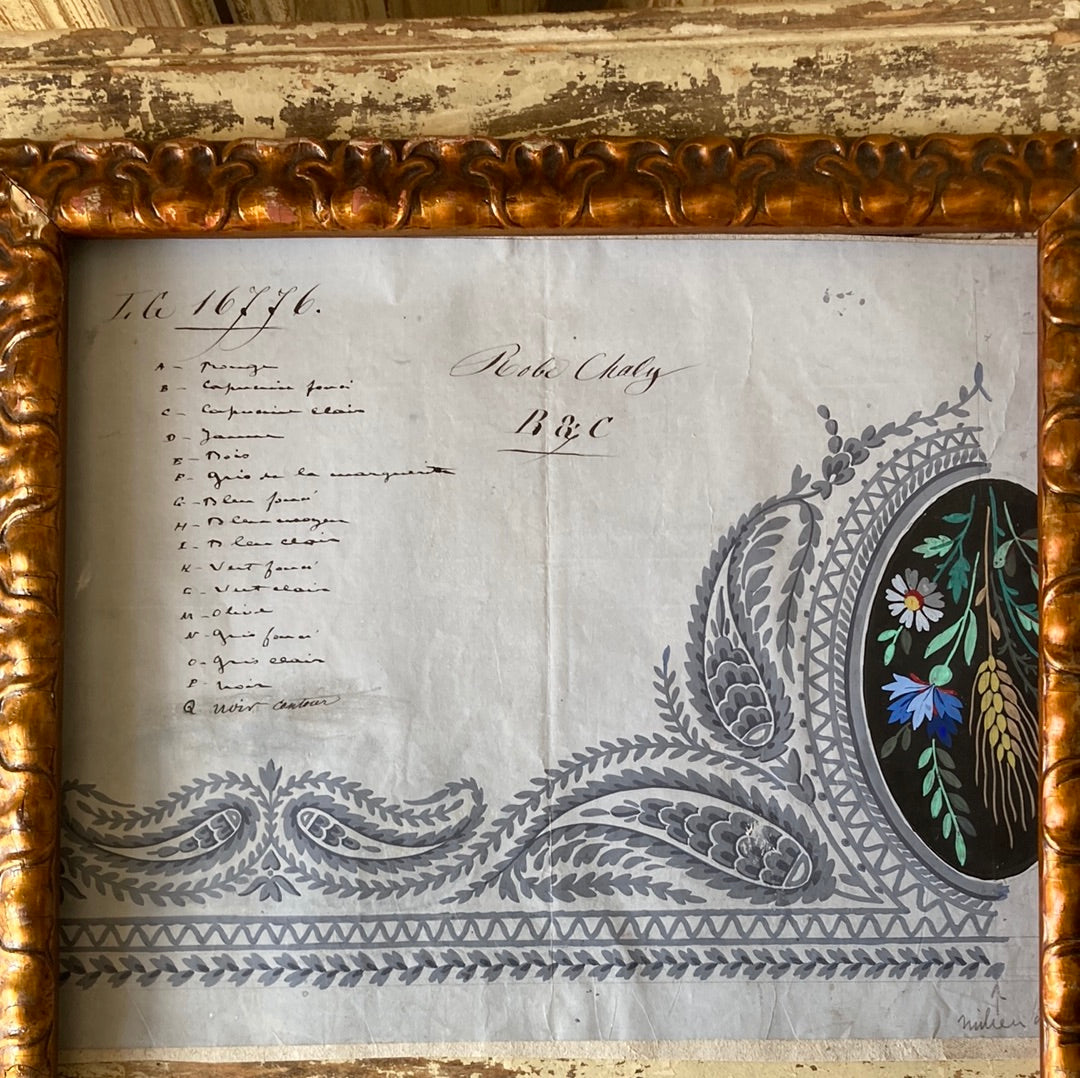 16776.
A - Rouge
B - Capucine foncé
C - Capucine clair
D - Jaune
E - Bois
F - Gris de la marguerite
G - Bleu foncé
H - Bleu moyen
I - Bleu clair
K - Vert foncé
Vert clair
M - Olive
N - Gris foncé
O - Gris clair
P - noir
Q noir contour
Robe Chaly
R & C
milieu